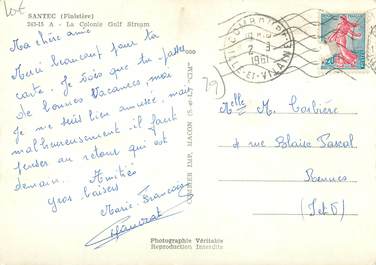 10€
SANTEC (Finistère)
263-15 A - La Colonie Gulf Stream
Ma chère amie
Merci beaucoup pour ta
carte. Je vois que tu passes
de bonnes vacances, moi
je me suis bien amusée, mais
malheureusement il faut
penser au retour qui est
demain. Amitiés
gros baisers
Marie-Françoise
COMBIER IMP. MACON (S.-et-L.) "CIM"
Photographie Véritable
Reproduction Interdite
2 - 9
1961
ILLE-ET-VILAINE
29)
Melle M. Corbière
4 rue Blaise Pascal
Rennes
(I et V)